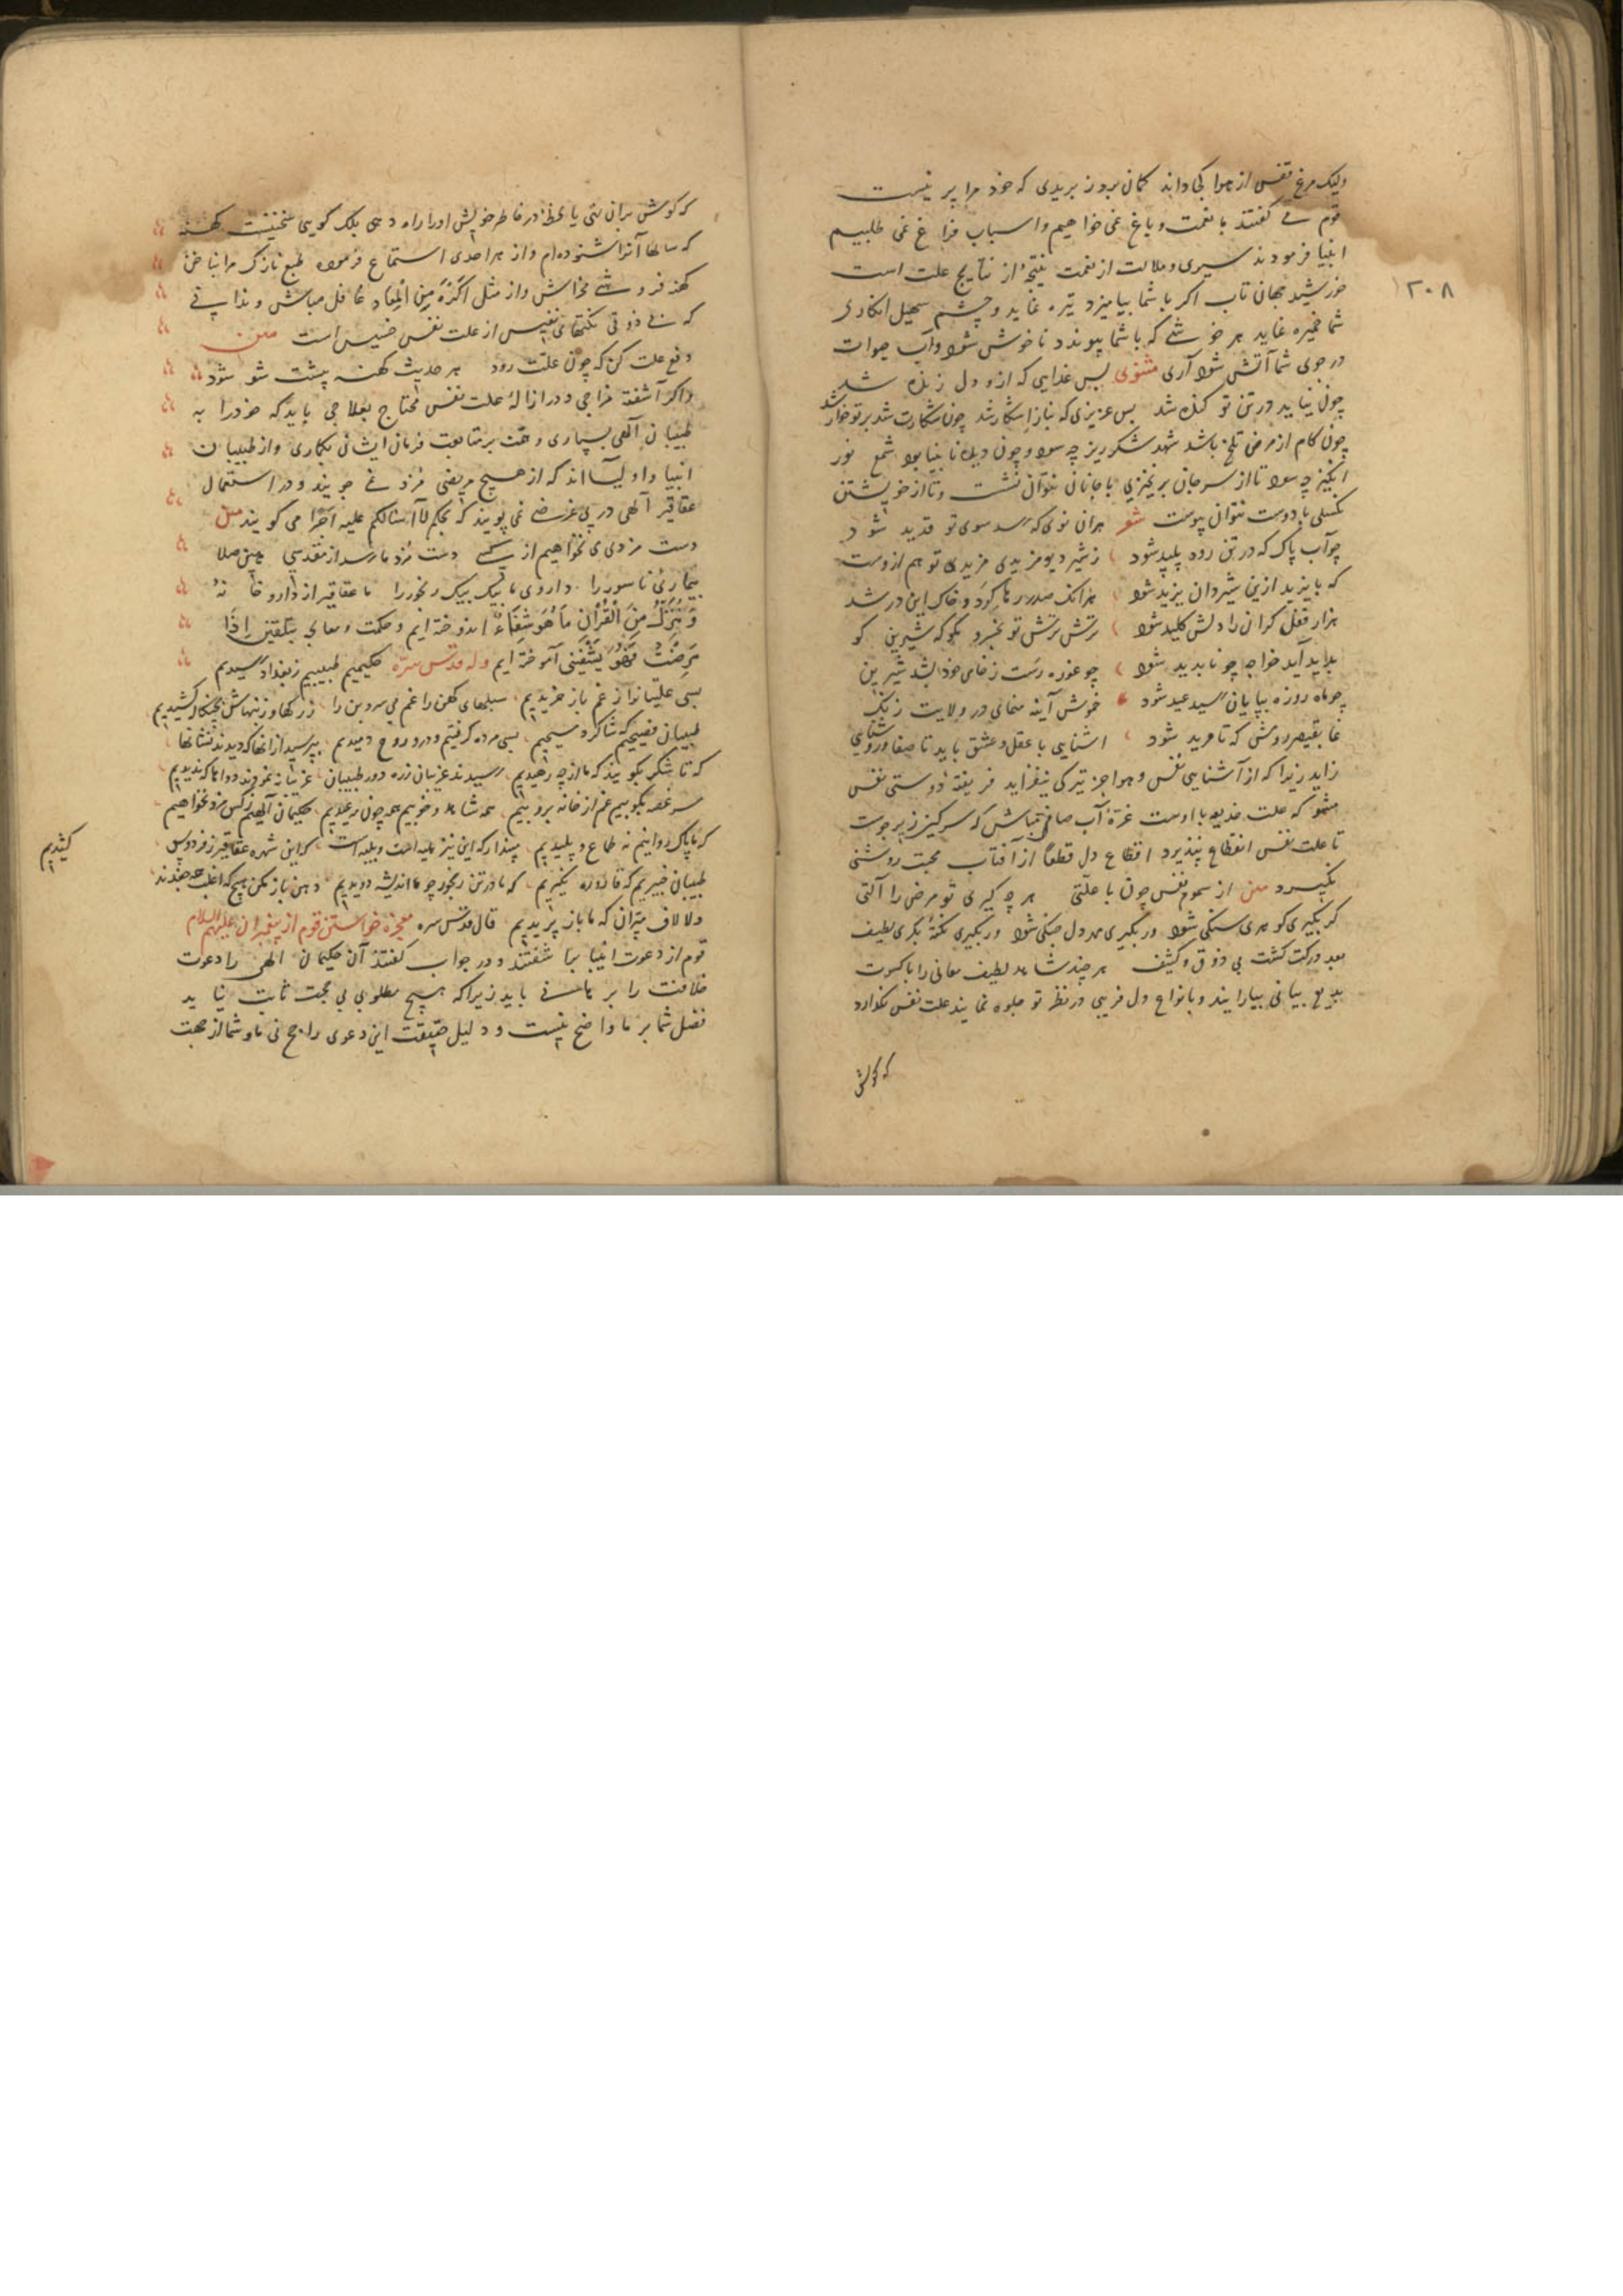 ۲۰۸
ولیک مرغ قفس از هوا کجا داند کمان برد ز بریدی که خود مرا پر نیست
قوم می گفتند با نعمت و باغ نمی خواهیم و اسباب فراغ نمی طلبیم
انبیا فرمودند سیری و ملالت از نعمت نتیجهٔ از نتایج علت است
خورشید جهان تاب اکر با شما بیامیزد تیره نماید و چشم سهیل انکاری
شما خیره نماید هر خوشی که با شما پیوندد ناخوش شود و آب حیوات
در جوی شما آتش شود آری مثنوی بس غذایی که ازو دل زنده شد
چون بیاید در تن تو کنده شد بس عزیزی که بناز اشکار شد چون شکارت شد بر تو خوار شد
چون کام از مرض تلخ باشد شهد شکرریز چه سود و چون دیده نابینا بود شمع نور
انکیز چه سود تا از سر جان برنخیزی با جانان نتوان نشست و تا از خویشتن
نکسلی با دوست نتوان پیوست شعر هران نوی که رسد سوی تو قدید شود
چو آب پاک که در تن رود پلید شود ز شیر دیو مزیدی مزیدی تو هم ازوست
که بایزید ازین شیردان یزید شود هرانک صدر رها کرد و خاک این در شد
هزار قفل کران را دلش کلید شود ترش ترش تو بخبرو مکو که شیرین کو
بدید آید خواجه چو نابدید شود چو غوره رست ز خامی خود شد شیرین
چو ماه روزه بپایان رسید عید شود خوش آینه منمای در ولایت زنک
نما بقیصر رومش که تا مرید شود اشنایی با عقل و عشق باید تا صفا و روشنایی
زاید زیرا که از آشنایی نفس و هوا جز تیرکی نیفزاید فریفتهٔ دوستی نفس
مشو که علت خدیعه با اوست غرهٔ آب صافی مباش که سرکین زیر جوست
تا علت نفس انقطاع نپذیرد اقطاع دل قطعا از آفتاب محبت روشنی
نکیرد متن از سموم نفس چون با علتی هر چه کیری تو مرض را آلتی
کر بکیری کوهری سنکی شود ور بکیری مهر دل جنکی شود ور بکیری نکتهٔ بکری لطیف
بعد درکت کشت بی ذوق و کثیف هر چند شاهد لطیف معانی را با کسوت
بدیع بیانی بیارایند و بانواع دل فریبی در نظر تو جلوه نمایند علت نفس نکذارد
که کوش
که کوش بران نهی یا لحظهٔ در خاطر خویش او را راه دهی بلک کویی سخنیست کهنه
که سالها آنرا شنوده‌ام و از هر احدی استماع فرموده طبع نازک مرا بناخن
کهنه فروشی مخراش و از مثل اکره من المعاد غافل مباش و ندانی
که بی ذوقی نکتهای نفیس از علت نفس خسیس است متن
دفع علت کن که چون علت رود هر حدیث کهنه پیشت نو شود
و اکر آشفته مزاجی و در ازالهٔ علت نفس محتاج بعلاجی باید که خود را به
طبیبان آلهی بسپاری و همت بر متابعت فرمان ایشان بکماری و از طبیبان
انبیا و اولیااند که از هیچ مریضی مزد نمی جویند و در استعمال
عقاقیر آلهی در پی غرضی نمی پویند که بحکم لا اسالکم علیه اجرا می کویند متن
دست مزدی می نخواهیم از کسی دست مزد ما رسد از مقدسی هین صلا
بیماری ناسور را داروی ما یک بیک رنجور را ما عقاقیر از داروخانهٔ
وَنُنَزِّلُ مِنَ الْقُرْآنِ مَا هُوَ شِفَاءٌ اندوخته ایم و حکمت و معالجه بتلقین اِذَا
مَرِضْتُ فَهُوَ یَشْفِینِ آموخته ایم وله قدس سره حکیمیم طبیبیم ز بغداد رسیدیم
بسی علتیانرا ز غم باز خریدیم سبلهای کهن را غم بی سر و بن را ز رکها و ز پیهاش بچنکال کشیدیم
طبیبان فصیحیم که شاکرد مسیحیم بسی مرده کرفتیم و درو روح دمیدیم بپرسید ازانها که دیدند نشانها
که تا شکر بکویند که ما از چه رهیدیم رسیدند طبیبان ز ره دور غریبان غریبانه نمودند دوا ما که ندیدیم
سر غصه بکوبیم غم از خانه بروبیم همه شاهد و خوبیم همه چون مه عیدیم حکیمان آلهیم ز کس مزد نخواهیم
که ما پاک روانیم نه طماع و پلیدیم مپندار که این نیز هلیله است و بلیله است که این شهره عقاقیر ز فردوس
کشیدیم
طبیبان خبیریم که قاروره نکیریم که ما در تن رنجور چو اندیشه دویدیم دهن باز مکن هیچ که اغلب همه جغدند
دکر لاف مپران که ما باز پریدیم قال قدس سره معجزه خواستن قوم از پیغمبران علیهم السلام
قوم از دعوت انبیا بیا شفتند و در جواب کفتند آن حکیمان الهی را دعوت
خلافت را برهانی باید زیرا که هیچ مطلوبی بی حجت ثابت نیاید
فضل شما بر ما واضح نیست و دلیل حقیقت این دعوی راجح نی ما و شما از جهت